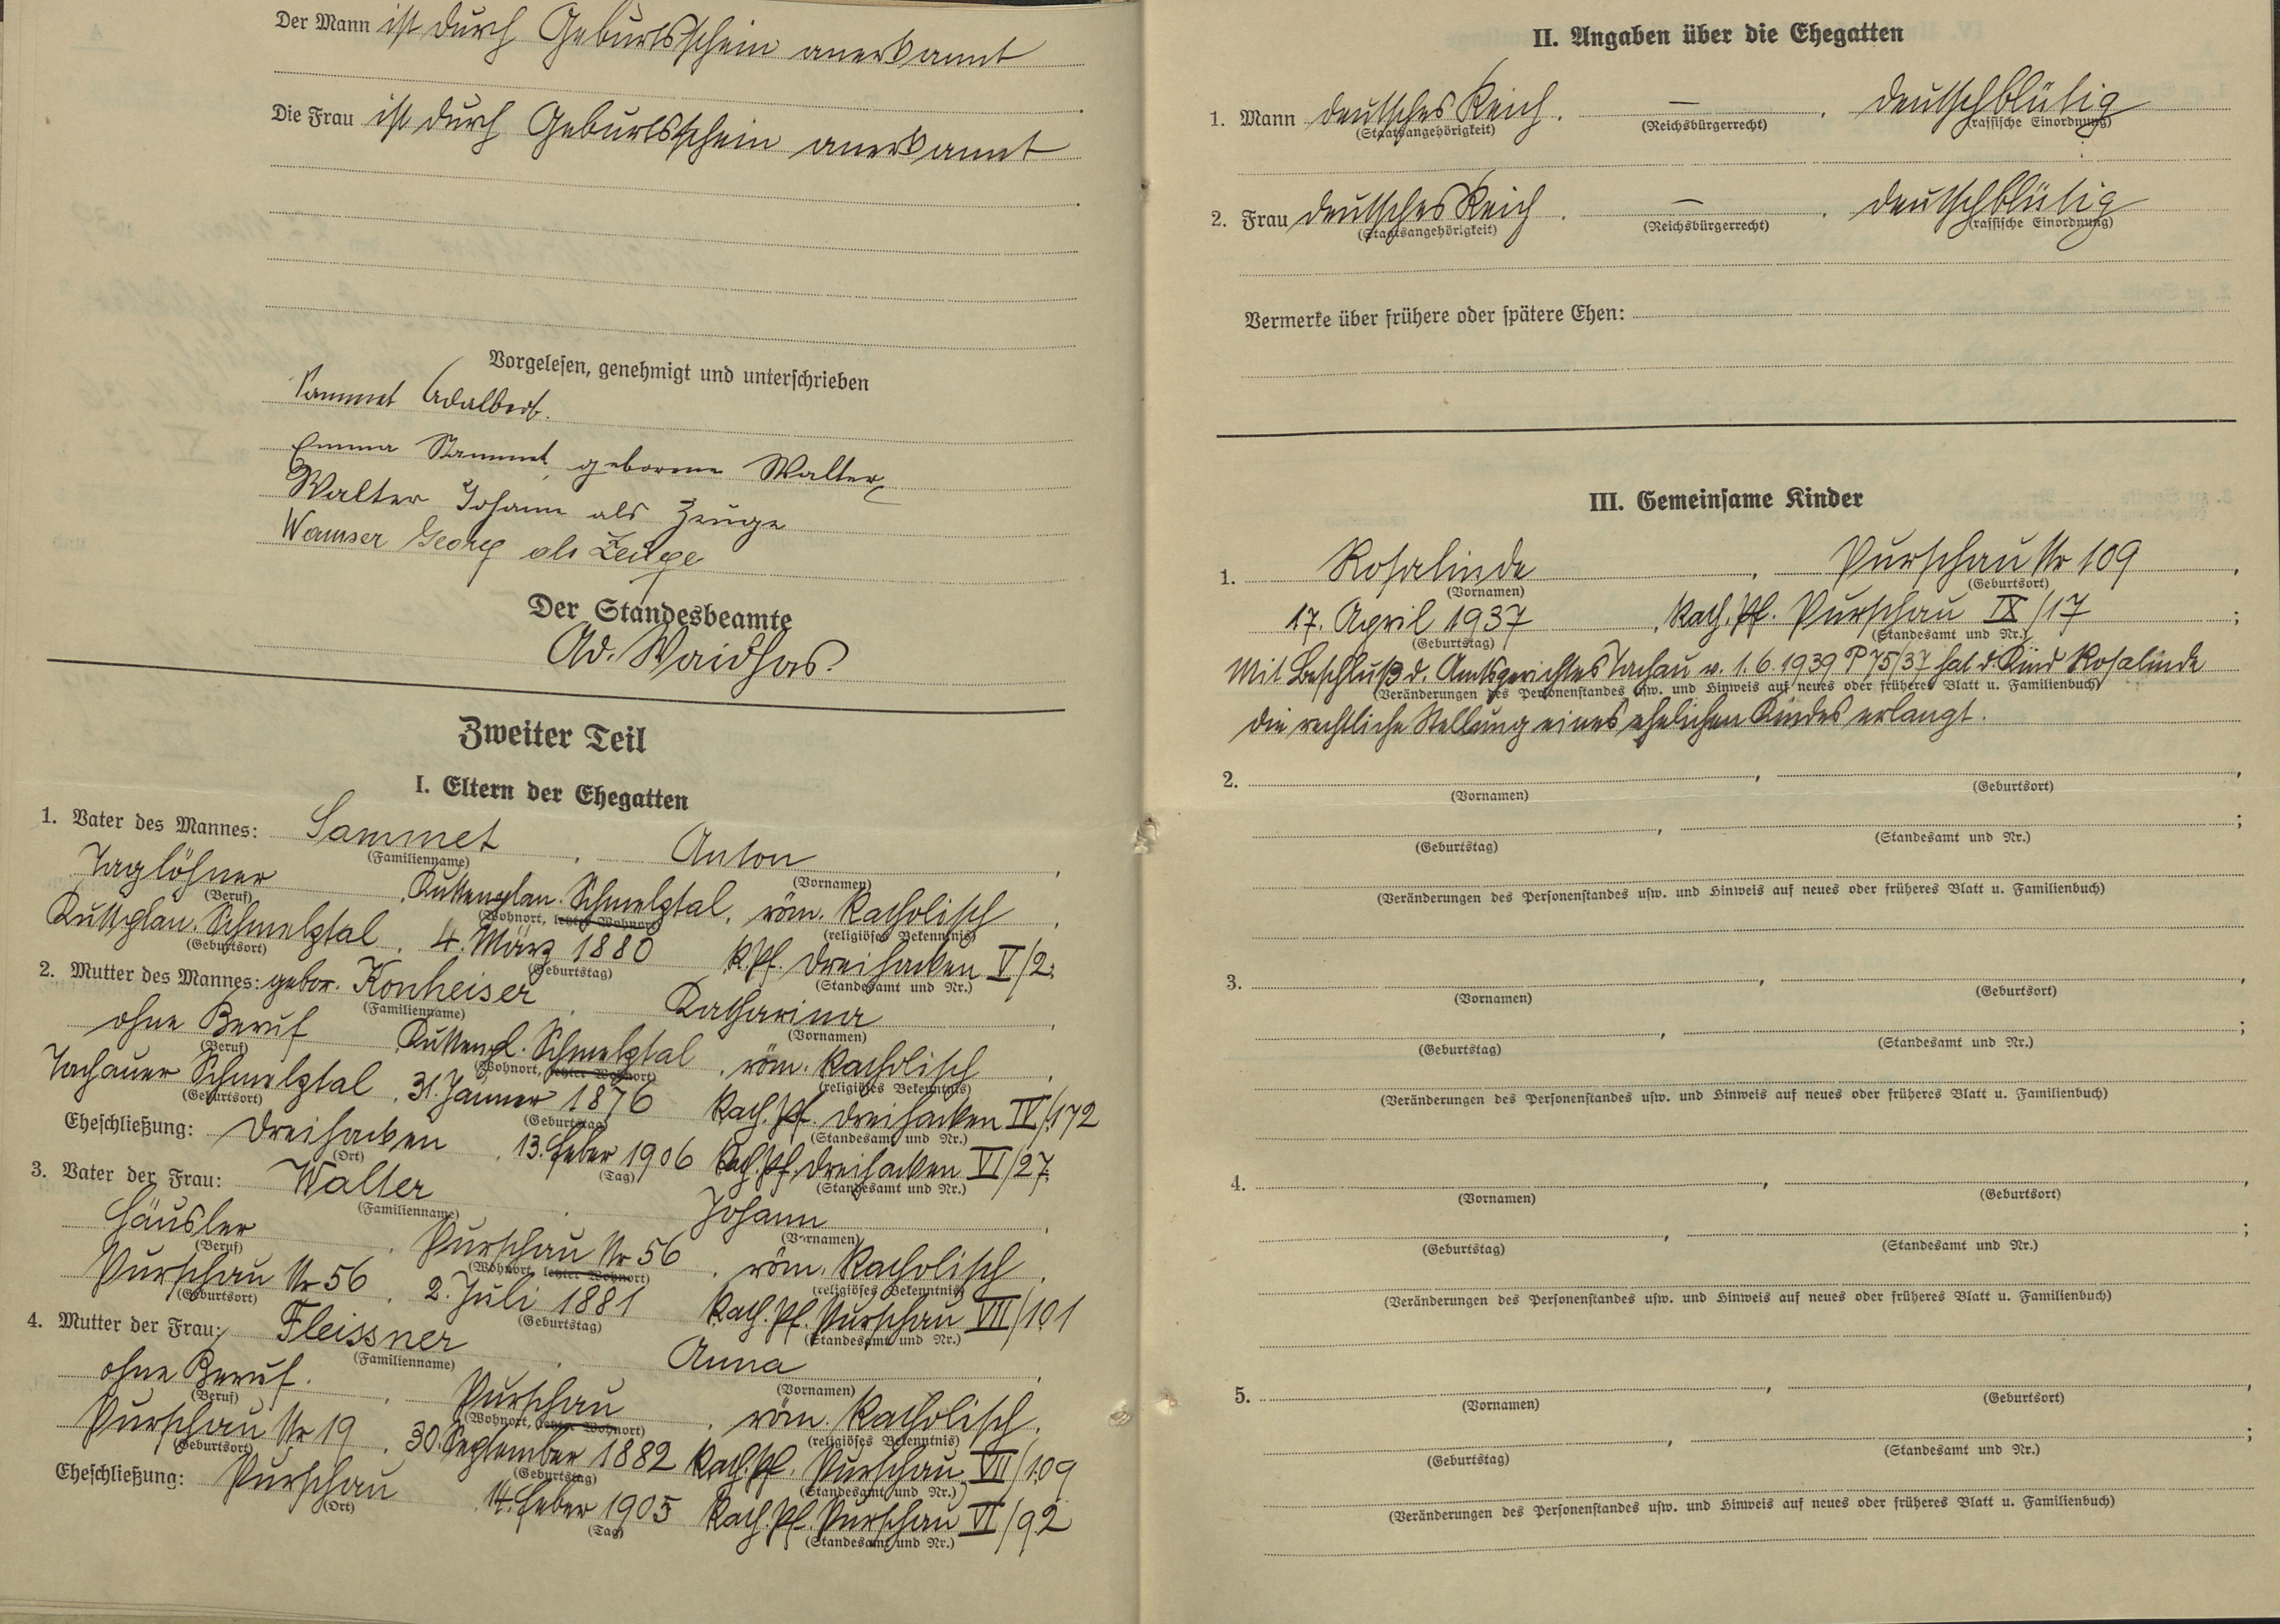 Der Mann ist durch Geburtsschein anerkannt
Die Frau ist durch Geburtsschein anerkannt
Vorgelesen, genehmigt und unterschrieben
Sammet Adalbert.
Emma Sammet geborene Walter
Walter Johann als Zeuge
Wamser Georg als Zeuge
Der Standesbeamte
Ad. Waidhas.
Zweiter Teil
I. Eltern der Ehegatten
1. Vater des Mannes: Sammet, Anton,
(Familienname) (Vornamen)
Taglöhner, Kuttenplan. Schmelztal, röm. katholisch,
(Beruf) (Wohnort, letzter Wohnort) (religiöses Bekenntnis)
Kuttplan. Schmelztal, 4. März 1880 k. Pf. Dreihacken V/2;
(Geburtsort) (Geburtstag) (Standesamt und Nr.)
2. Mutter des Mannes: gebor. Konheiser, Katharina,
(Familienname) (Vornamen)
ohne Beruf, Kuttenpl. Schmelztal, röm. katholisch,
(Beruf) (Wohnort, letzter Wohnort) (religiöses Bekenntnis)
Tachauer Schmelztal, 31. Jänner 1876 kath. Pf. Dreihacken IV/172
(Geburtsort) (Geburtstag) (Standesamt und Nr.)
Eheschließung: Dreihacken, 13. Feber 1906 kath. Pf. Dreihacken VI/27.
(Ort) (Tag) (Standesamt und Nr.)
3. Vater der Frau: Walter, Johann,
(Familienname) (Vornamen)
Häusler, Purschau Nr 56, röm. katholisch,
(Beruf) (Wohnort, letzter Wohnort) (religiöses Bekenntnis)
Purschau Nr 56, 2. Juli 1881 kath. Pf. Purschau VII/101
(Geburtsort) (Geburtstag) (Standesamt und Nr.)
4. Mutter der Frau: Fleissner, Anna,
(Familienname) (Vornamen)
ohne Beruf., Purschau, röm. katholisch,
(Beruf) (Wohnort, letzter Wohnort) (religiöses Bekenntnis)
Purschau Nr 19, 30. September 1882 kath. Pf. Purschau VII/109
(Geburtsort) (Geburtstag) (Standesamt und Nr.)
Eheschließung: Purschau, 14. Feber 1905 kath. Pf. Purschau VI/92
(Ort) (Tag) (Standesamt und Nr.)
II. Angaben über die Ehegatten
1. Mann deutsches Reich, —, deutschblütig
(Staatsangehörigkeit) (Reichsbürgerrecht) (rassische Einordnung)
2. Frau deutsches Reich, —, deutschblütig
(Staatsangehörigkeit) (Reichsbürgerrecht) (rassische Einordnung)
Vermerke über frühere oder spätere Ehen:
III. Gemeinsame Kinder
1. Rosalinde, Purschau Nr 109,
(Vornamen) (Geburtsort)
17. April 1937, kath. Pf. Purschau IX/17;
(Geburtstag) (Standesamt und Nr.)
Mit Beschluß d. Amtsgerichtes Tachau v. 1.6.1939 P 75/37 hat d. Kind Rosalinde
(Veränderungen des Personenstandes usw. und Hinweis auf neues oder früheres Blatt u. Familienbuch)
die rechtliche Stellung eines ehelichen Kindes erlangt.
2. , ,
(Vornamen) (Geburtsort)
, ;
(Geburtstag) (Standesamt und Nr.)
(Veränderungen des Personenstandes usw. und Hinweis auf neues oder früheres Blatt u. Familienbuch)
3. , ,
(Vornamen) (Geburtsort)
, ;
(Geburtstag) (Standesamt und Nr.)
(Veränderungen des Personenstandes usw. und Hinweis auf neues oder früheres Blatt u. Familienbuch)
4. , ,
(Vornamen) (Geburtsort)
, ;
(Geburtstag) (Standesamt und Nr.)
(Veränderungen des Personenstandes usw. und Hinweis auf neues oder früheres Blatt u. Familienbuch)
5. , ,
(Vornamen) (Geburtsort)
, ;
(Geburtstag) (Standesamt und Nr.)
(Veränderungen des Personenstandes usw. und Hinweis auf neues oder früheres Blatt u. Familienbuch)